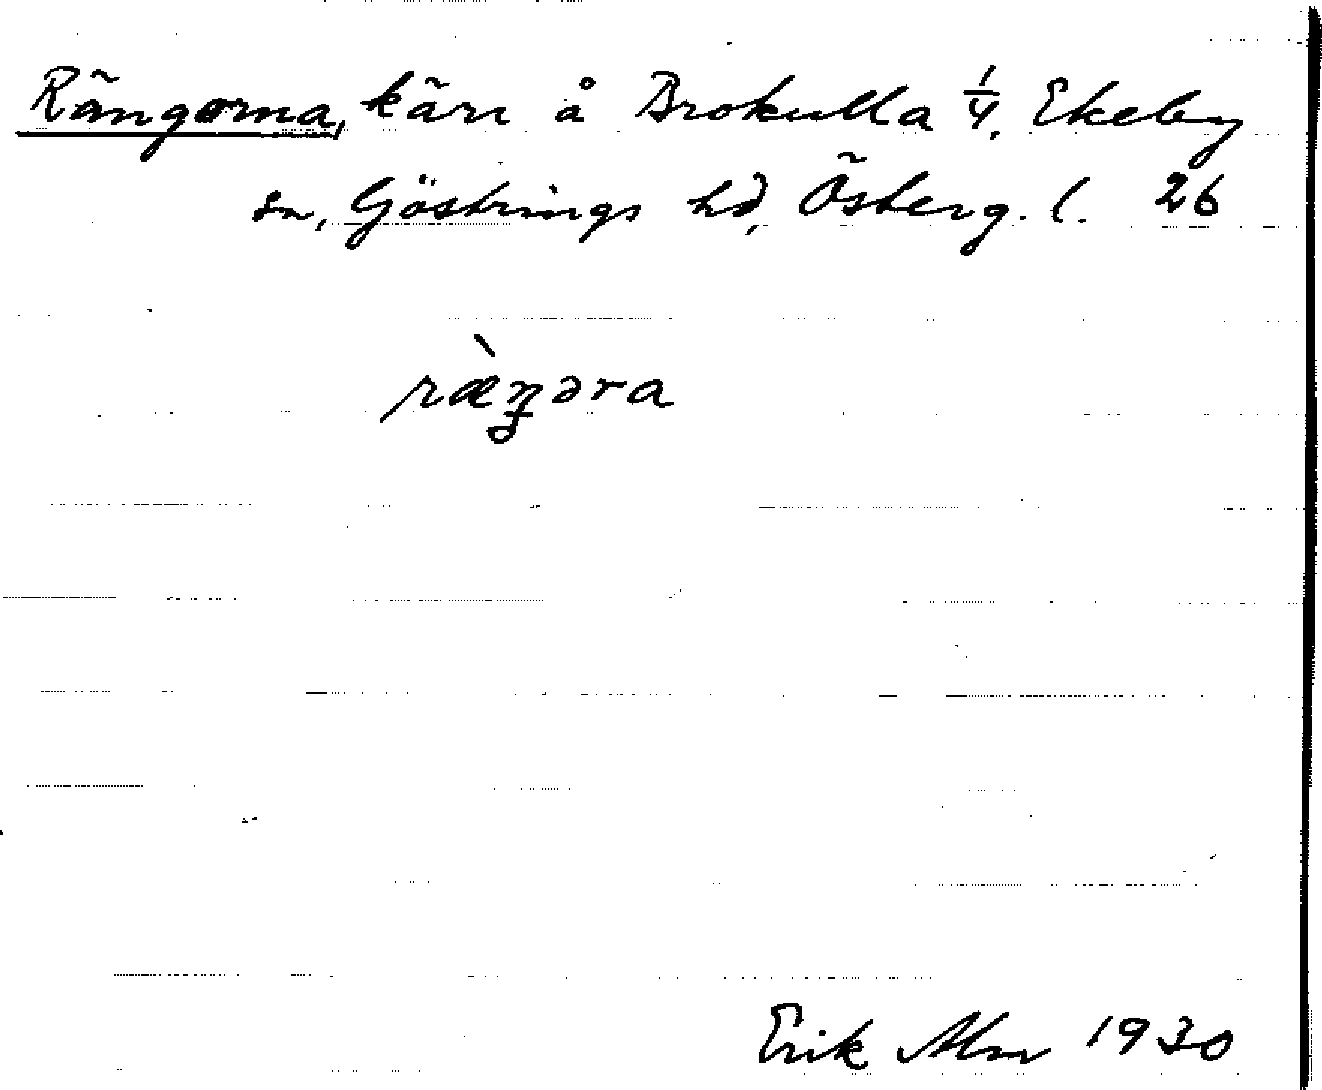 Rängorna, kärr å Brokulla 1/4, Ekeby
sn, Göstrings hd, Österg. l. 26
ræ̀ŋəra
Erik Alm 1930